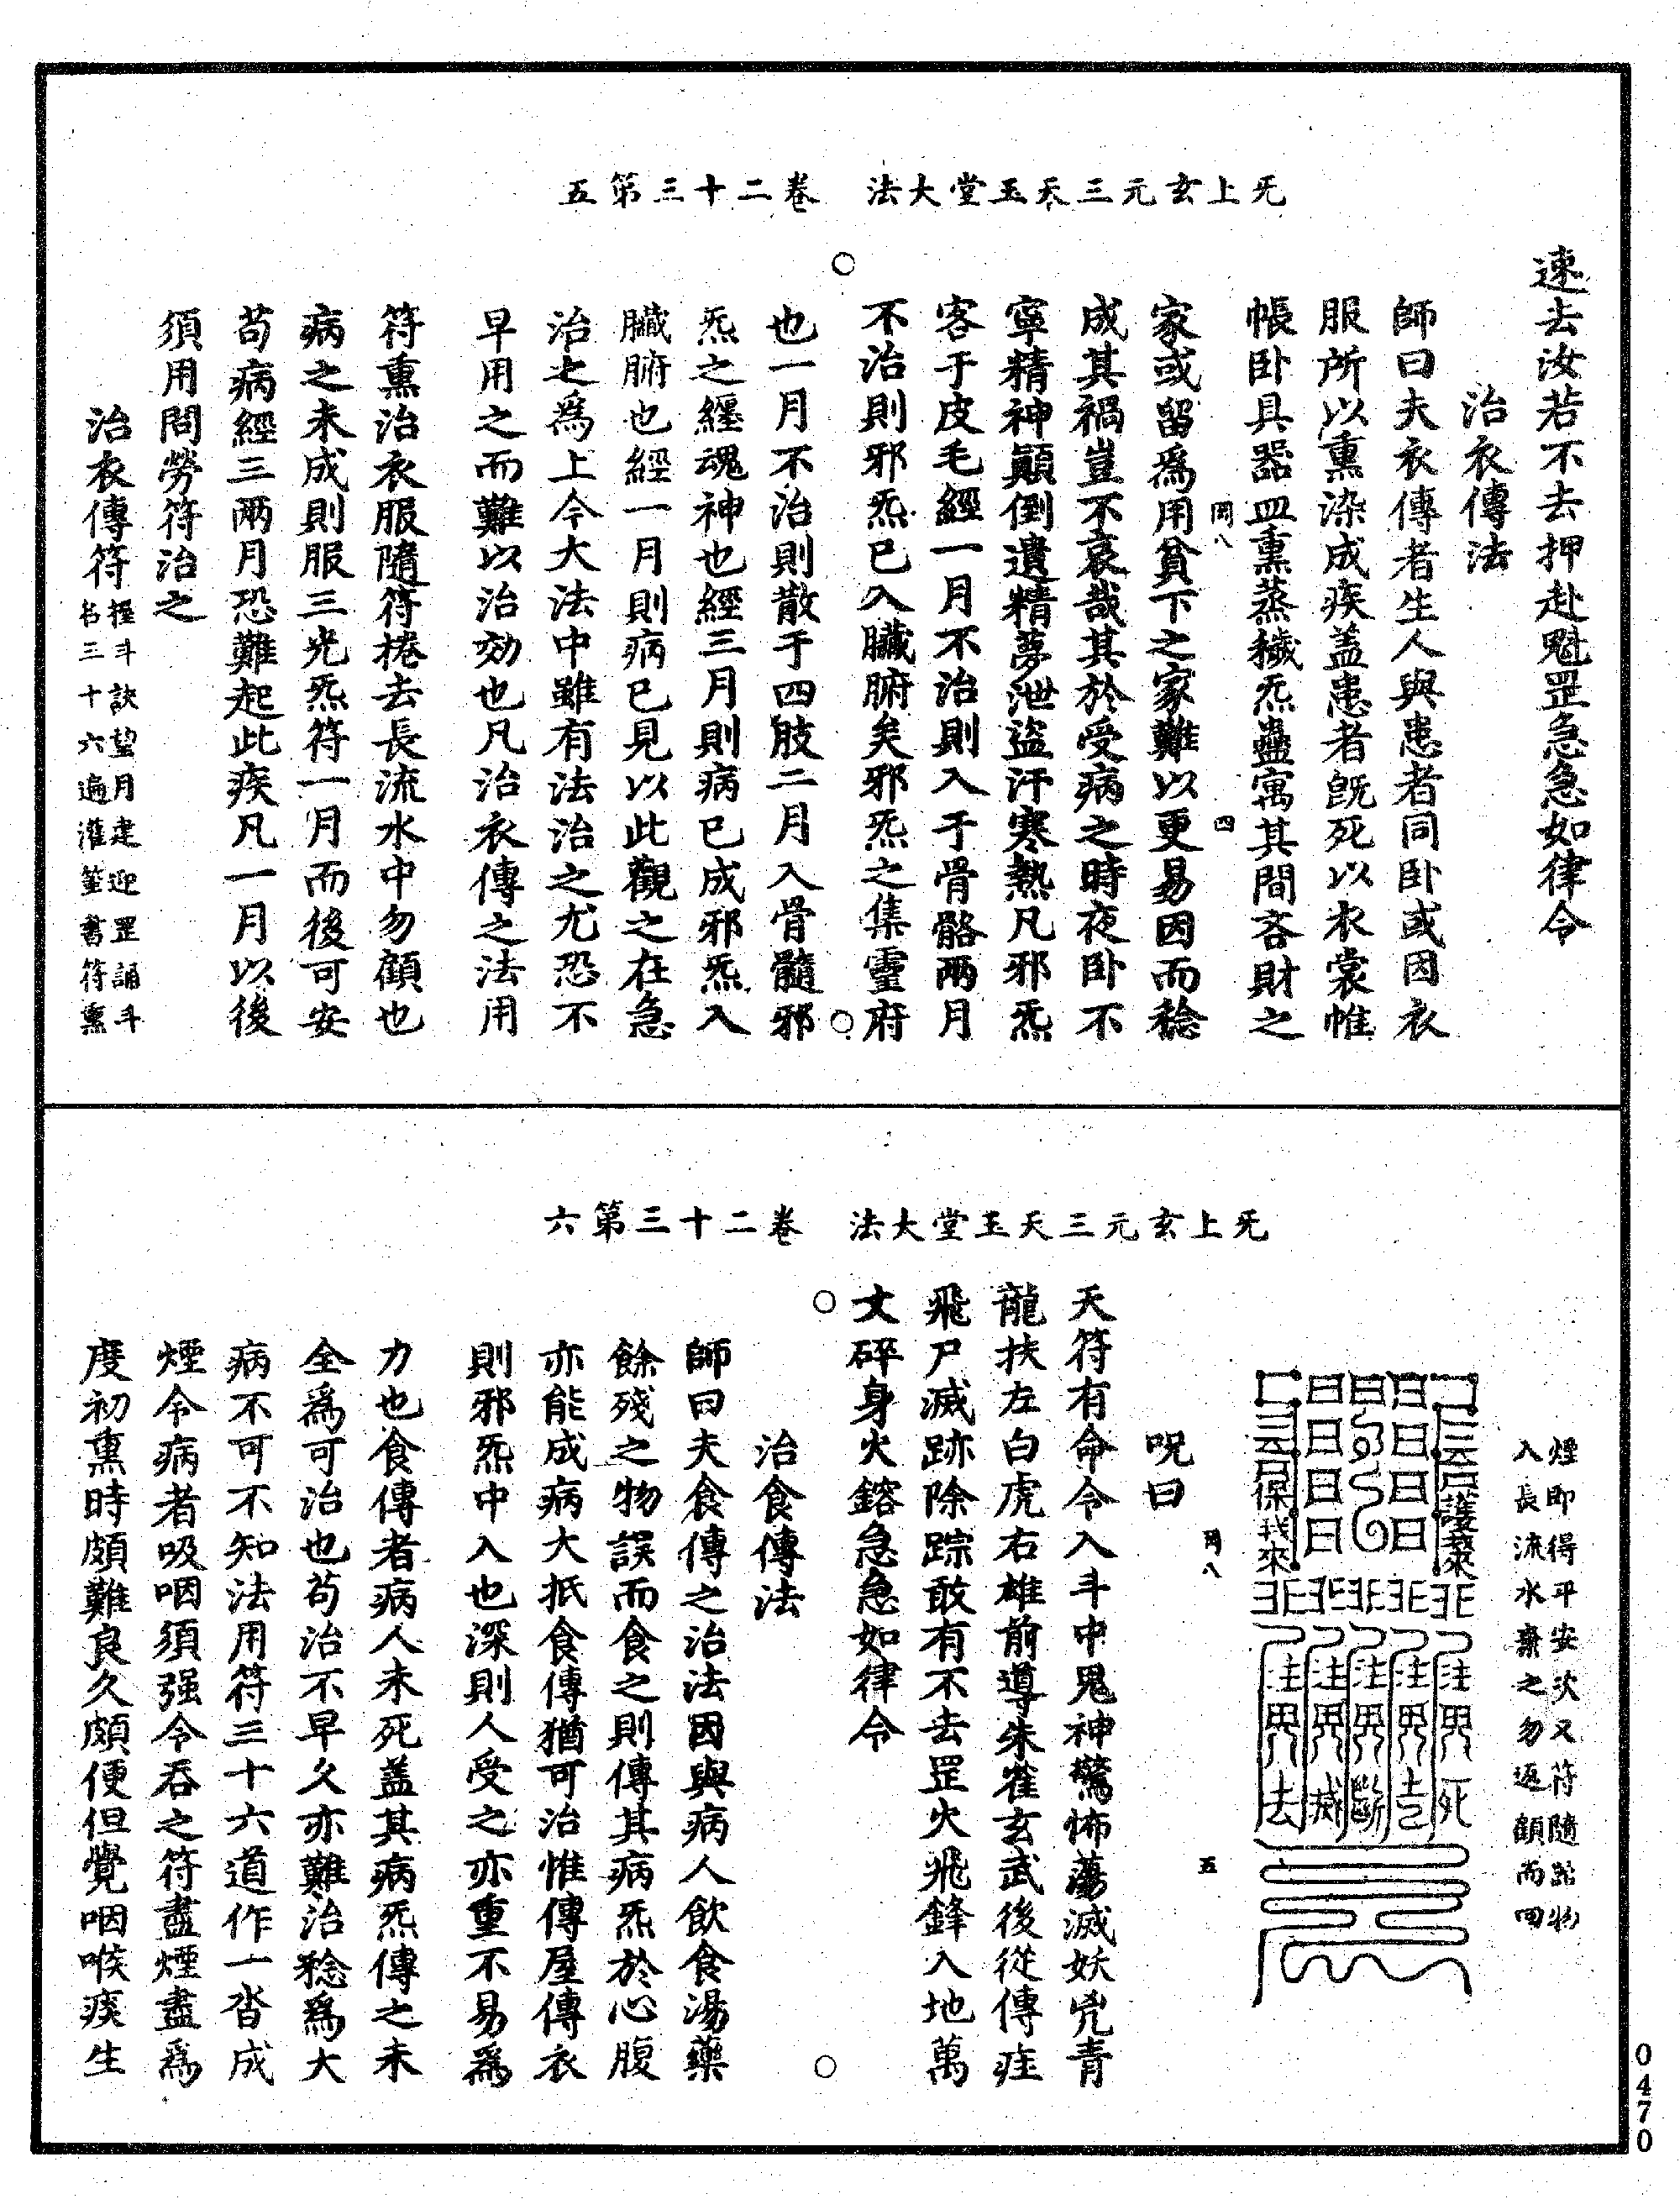 无上玄元三天玉堂大法 卷二十三第五
速去汝若不去押赴魁罡急急如律令
治衣傳法
師曰夫衣傳者生人與患者同卧或因衣
服所以熏染成疾盖患者旣死以衣裳帷
帳卧具器皿熏蒸穢炁蠱寓其間吝財之
岡八 四
家或留爲用貧下之家難以更易因而稔
成其禍豈不哀哉其於受病之時夜卧不
寧精神顚倒遺精夢泄盜汗寒熱凡邪炁
客于皮毛經一月不治則入于骨骼兩月
不治則邪炁已入臟腑矣邪炁之集靈府
也一月不治則散于四肢二月入骨髓邪
炁之纏魂神也經三月則病已成邪炁入
臟腑也經一月則病已見以此觀之在急
治之爲上今大法中雖有法治之尤恐不
早用之而難以治効也凡治衣傳之法用
符熏治衣服隨符捲去長流水中勿顧也
病之未成則服三光炁符一月而後可安
苟病經三兩月恐難起此疾凡一月以後
須用問勞符治之
治衣傳符
握斗訣望月建迎罡誦斗
名三十六遍灌筆書符熏
无上玄元三天玉堂大法 卷二十三第六
煙即得平安次又符隨器物
入長流水棄之勿返顧而回
護
保我來
死
斷
滅
去
咒曰
岡八 五
天符有命令入斗中鬼神驚怖蕩滅妖兇青
龍扶左白虎右雄前導朱雀玄武後從傳疰
飛尸滅跡除踪敢有不去罡火飛鋒入地萬
丈碎身火鎔急急如律令
治食傳法
師曰夫食傳之治法因與病人飲食湯藥
餘殘之物誤而食之則傳其病炁於心腹
亦能成病大抵食傳猶可治惟傳屋傳衣
則邪炁中入也深則人受之亦重不易爲
力也食傳者病人未死盖其病炁傳之未
全爲可治也苟治不早久亦難治稔爲大
病不可不知法用符三十六道作一沓成
煙令病者吸咽須强令吞之符盡煙盡爲
度初熏時頗難良久頗便但覺咽喉痰生
0470